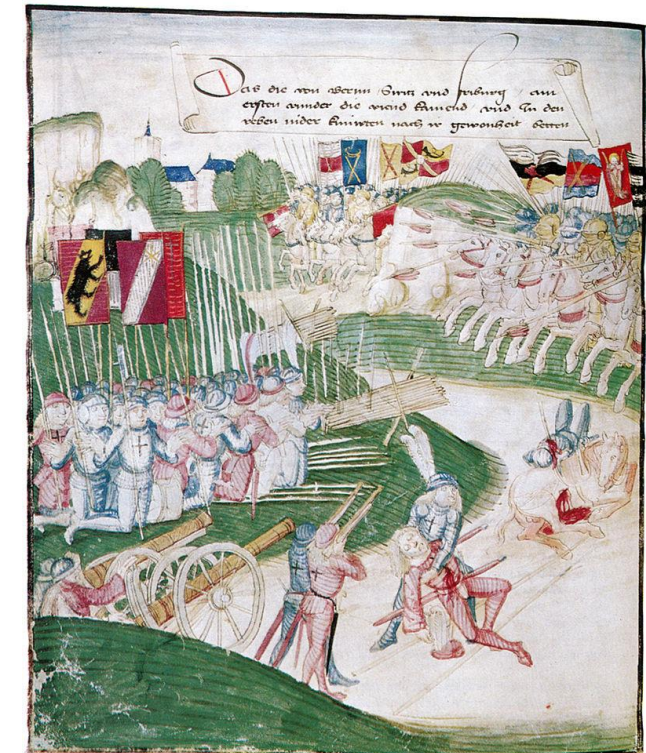 Das die von Bernn Switz vnd friburg / am
ersten die viend kamend vnd In den
reben nider knüwten nach ir gewonheit betten